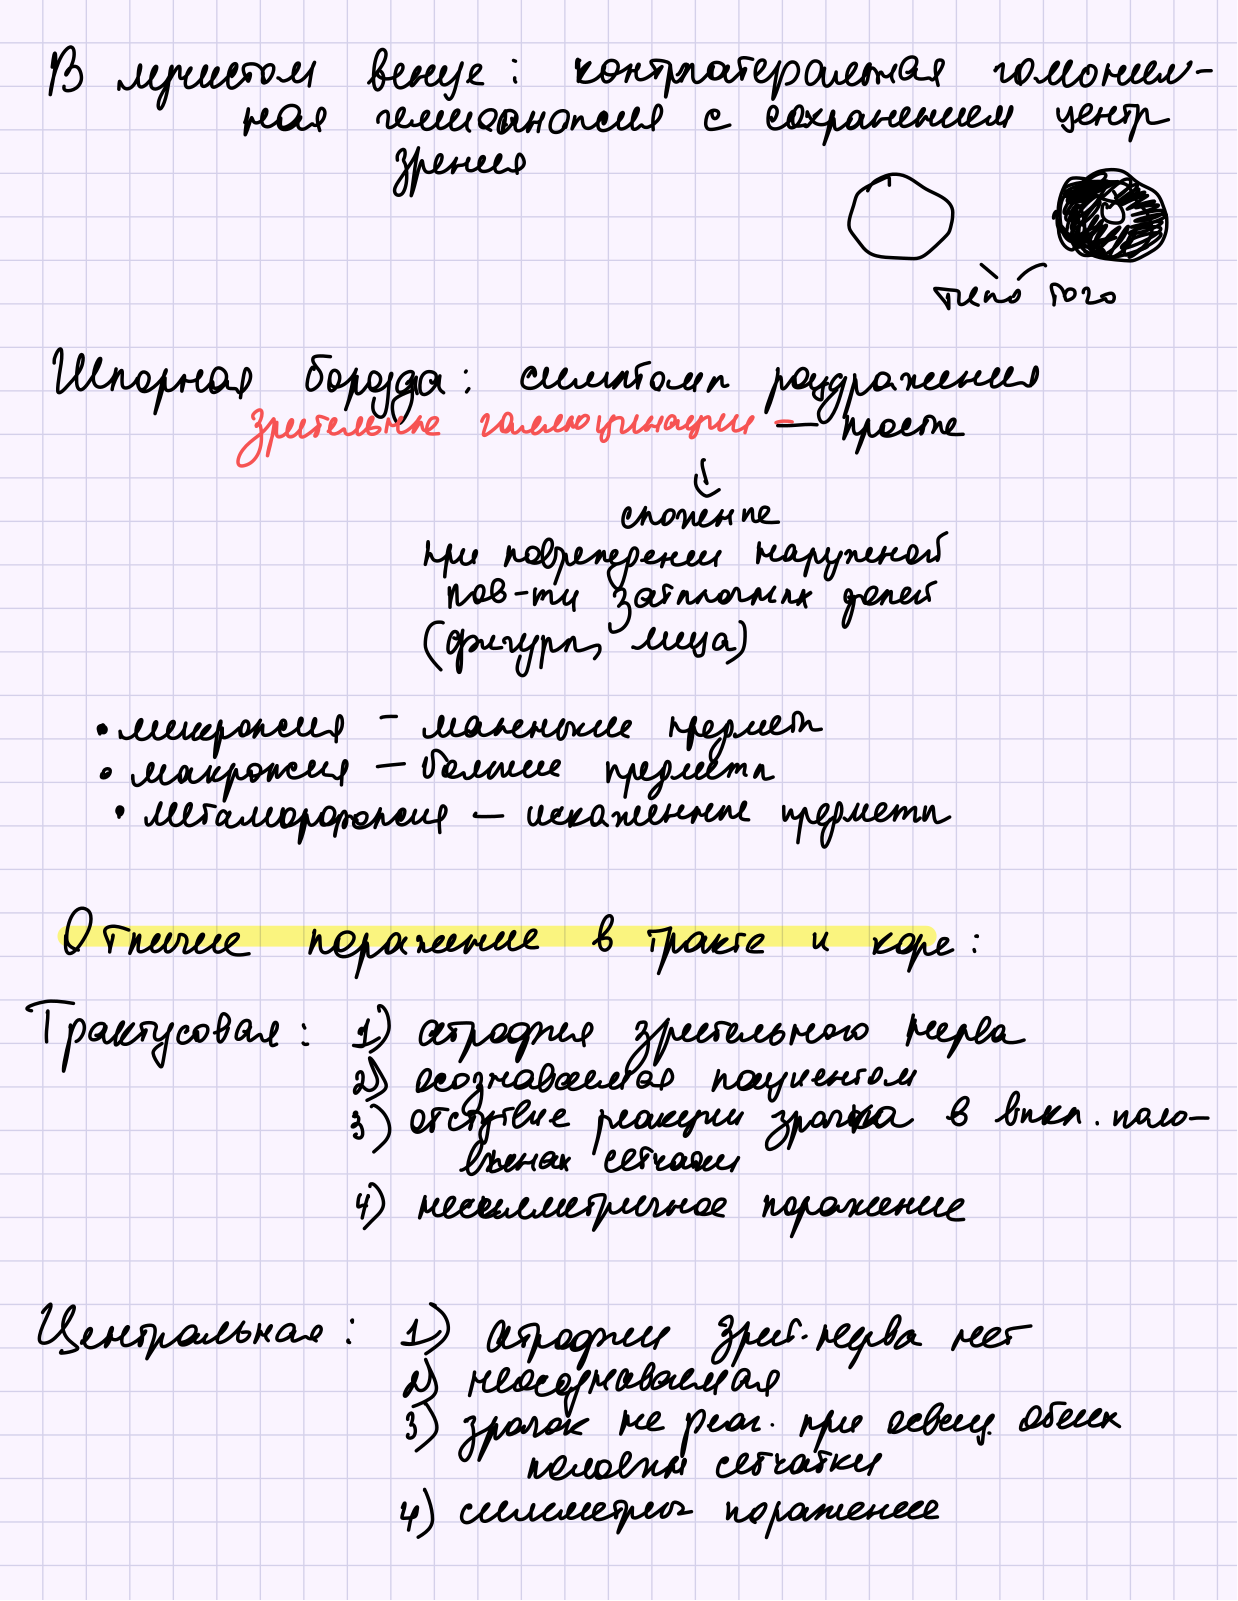 В лучистом венце: контрлатеральная гомоним-
ная гемианопсия с сохранением центр
зрения
типо того
Шпорная борозда: симптомы раздражения
зрительные галлюцинации — простые
сложные
при повреждении наружной
пов-ти затылочных долей
(фигуры, лица)
• микропсия – маленькие предметы
• макропсия – большие предметы
• метаморфопсия – искаженные предметы
Отличие поражение в тракте и коре:
Трактусовая: 1) атрофия зрительного нерва
2) осознаваемая пациентом
3) отсутвие реакции зрачка в выкл. поло-
винах сетчатки
4) несимметричное поражение
Центральная: 1) атрофии зрит. нерва нет
2) неосознаваемая
3) зрачок не реаг. при освещ. обеих
половин сетчатки
4) симметрич поражение